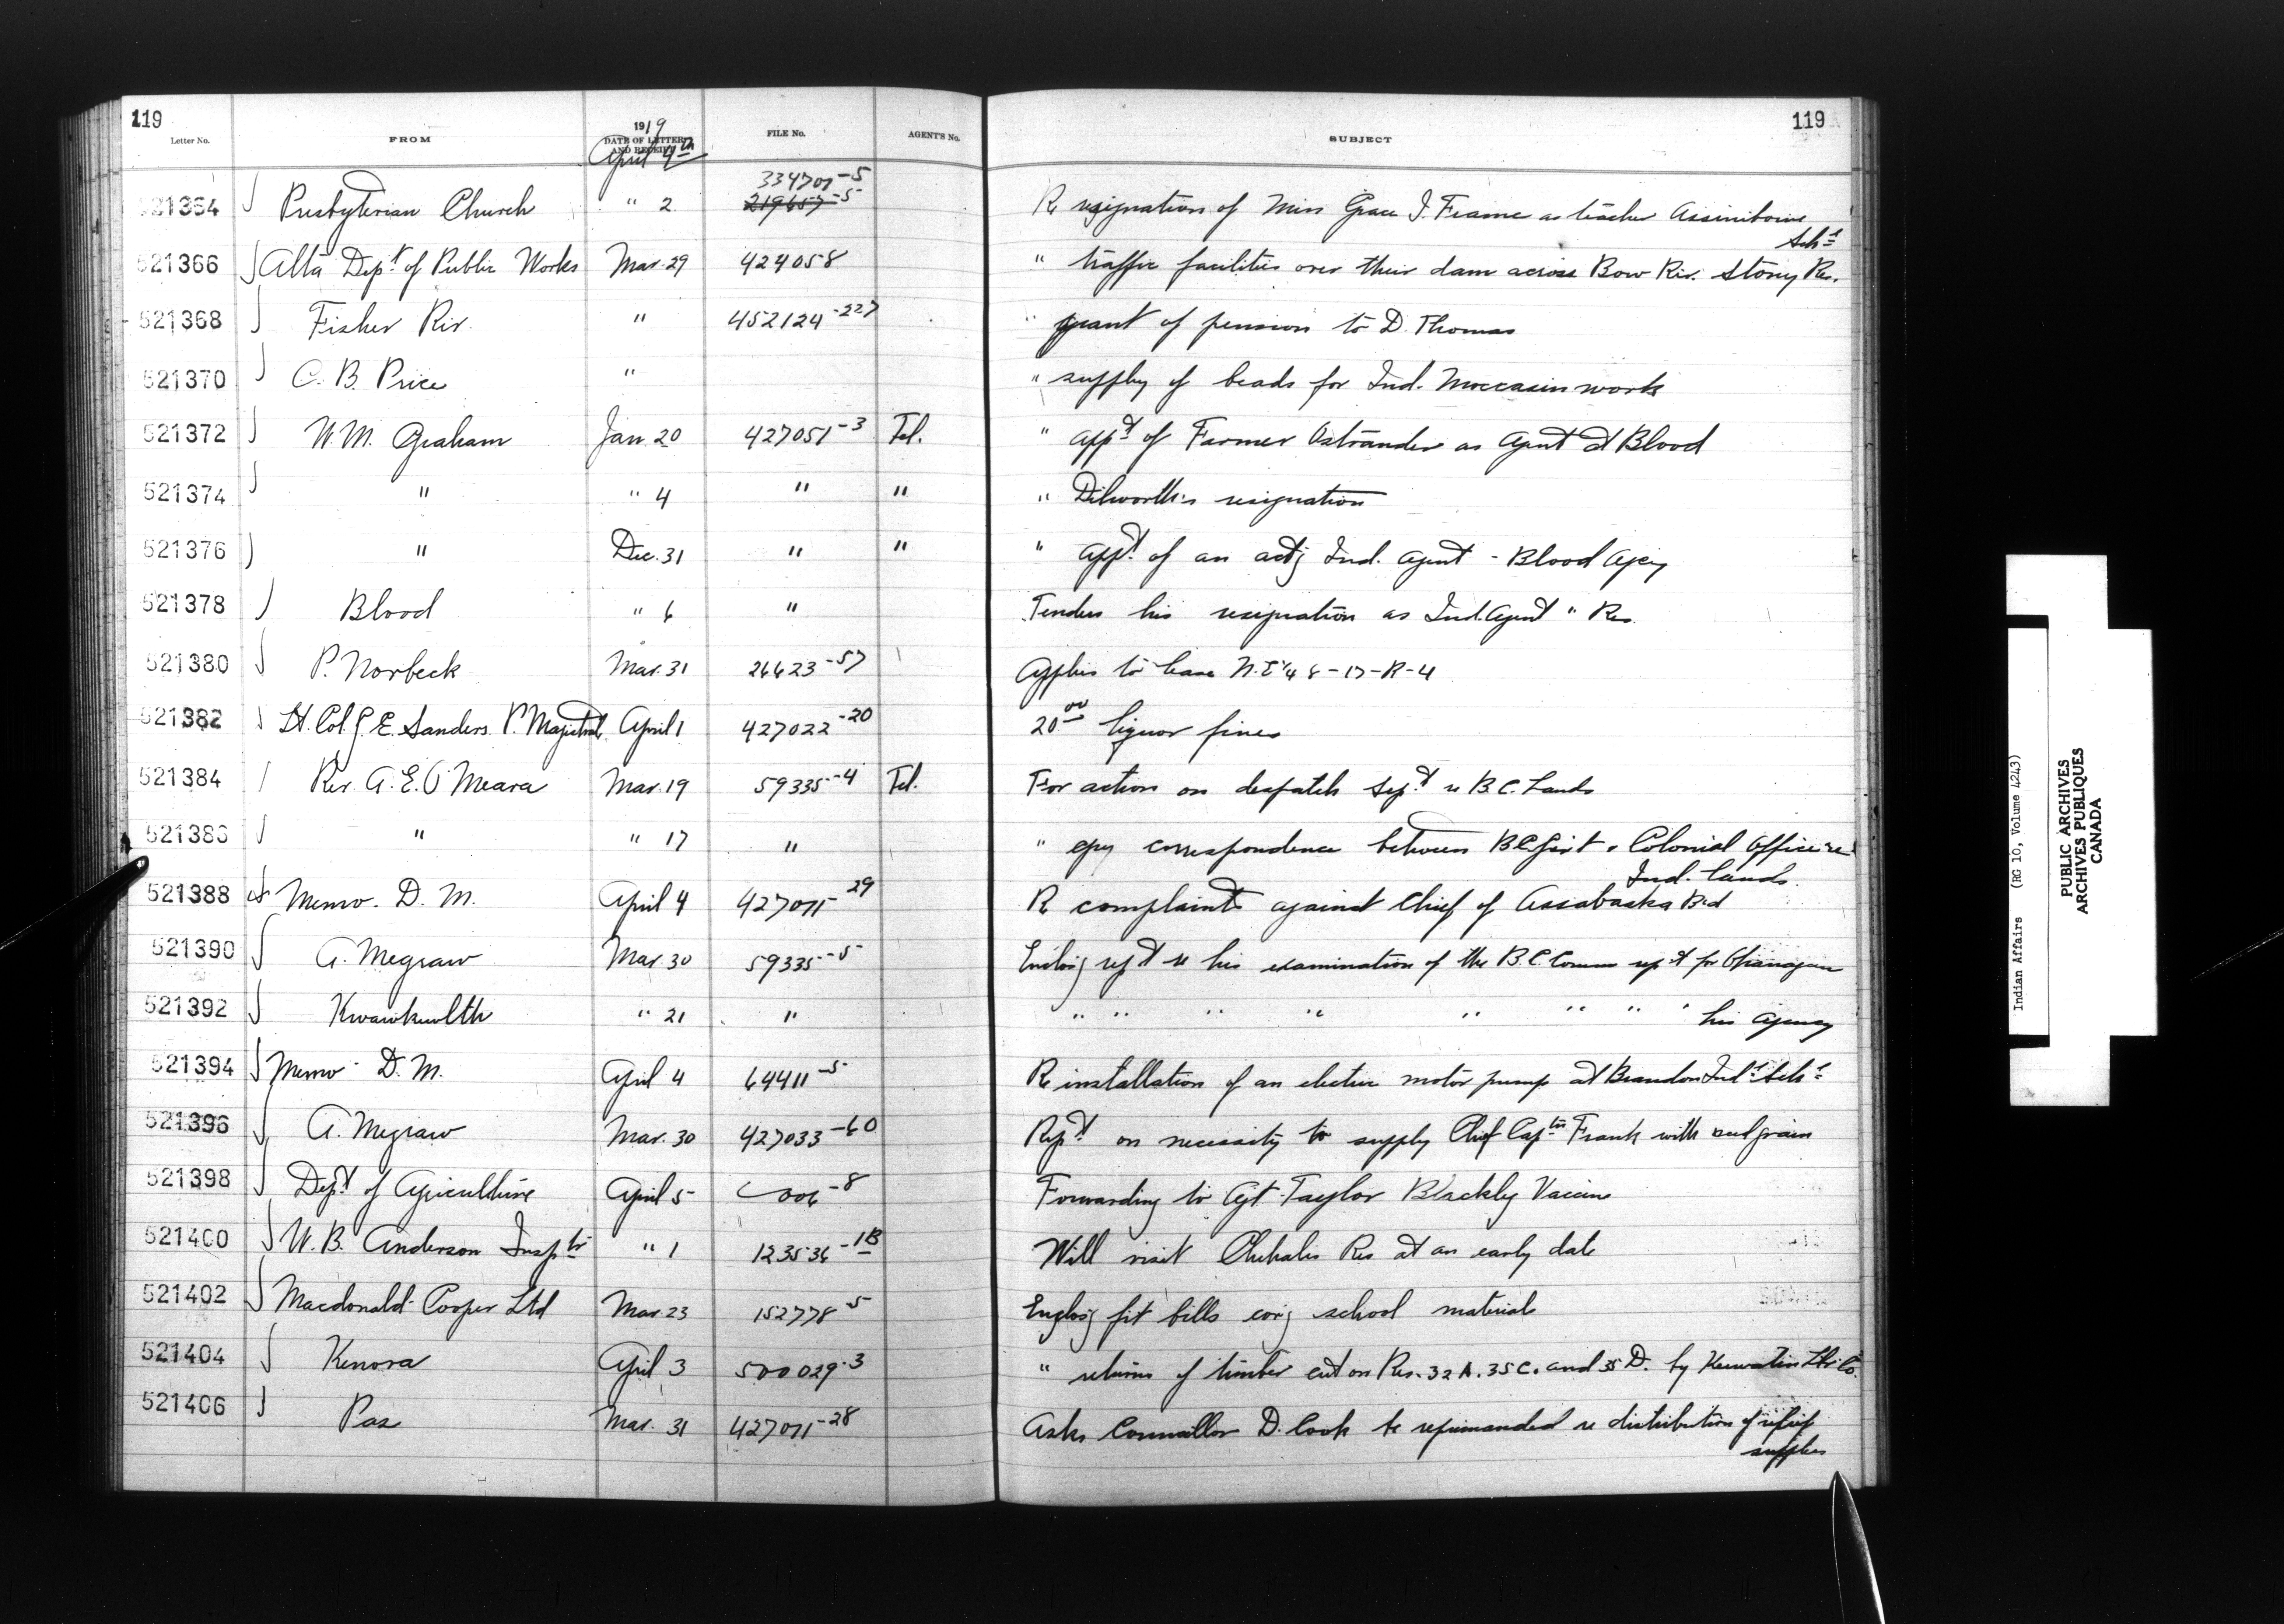 119 119
Letter No. FROM 1919 DATE OF LETTER AND RECEIPT FILE No. AGENT'S No. SUBJECT
April 4th
334701-5
521364 Presbyterian Church " 2 219657-5 Re resignation of Miss Grace J. Frame as teacher Assiniboine
Schl
521366 Alta Dept of Public Works Mar. 29 424058 " traffic facilities over their dam across Bow Riv. Stony Res.
521368 Fisher Riv. " 452124-227 " grant of pension to D. Thomas
521370 C. B. Price " " supply of beads for Ind. Moccasin work
521372 W. M. Graham Jan. 20 427051-3 Tel. " appt of Farmer Ostrander as Agent at Blood
521374 " " 4 " " " Dilworth's resignation
521376 " Dec. 31 " " " appt of an actg Ind. Agent - Blood Agcy
521378 Blood " 6 " Tenders his resignation as Ind. Agent " Res.
521380 P. Norbeck Mar. 31 26623-57 Applies to lease N.E 1/4 8-17-R-4
521382 Lt. Col. G. E. Sanders P. Magistrate April 1 427022-20 20.00 liquor fines
521384 Rev. A. E. O'Meara Mar. 19 59335-4 Tel. For action on despatch Sept re B.C. Lands
521386 " " 17 " " cpy correspondence between B.C. Govt & Colonial Office re
Ind. lands.
521388 Memo. D. M. April 4 427071-29 Re complaints against Chief of Assabaska Bd
521390 A. Megraw Mar. 30 59335-5 Enclosg rept re his examination of the B.C. Comm rept for Okanagan
521392 Kwawkewlth " 21 " " " " " " " " " his Agency
521394 Memo D. M. April 4 64411-5 Re installation of an electric motor pump at Brandon Indl Schl
521396 A. Megraw Mar. 30 427033-60 Rept on necessity to supply Chief Captn Frank with seed grain
521398 Dept of Agriculture April 5 006-8 Forwarding to Agt. Taylor Blackleg Vaccine
521400 W. B. Anderson Insptr " 1 123536-1B Will visit Chehalis Res at an early date
521402 Macdonald-Cooper Ltd Mar. 23 152778-5 Enclosg frt bills covg school material
521404 Kenora April 3 500029-3 " returns of timber cut on Res. 32A. 35C. and 35D. by Keewatin Lbr Co.
521406 Pas Mar. 31 427071-28 Asks Councillor D. Cook be reprimanded re distribution of relief
supplies
Indian Affairs (RG 10, Volume 4243)
PUBLIC ARCHIVES
ARCHIVES PUBLIQUES
CANADA